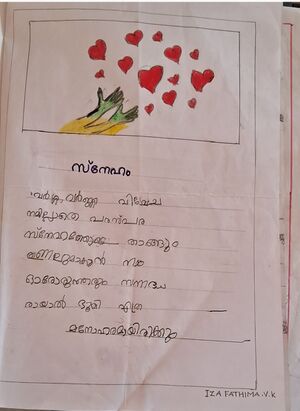 സ്നേഹം
വർണ്ണ, വർണ്ണ വിവേച
നമില്ലാതെ പരസ്പര
സ്നേഹത്തോടെ താങ്ങും
തണലുമാകാൻ നമു
ഓരോരുത്തരും സന്നദ്ധ
രായാൽ ഭൂമി എത്ര
മനോഹരമായിരിക്കും
IZA FATHIMA.V.K